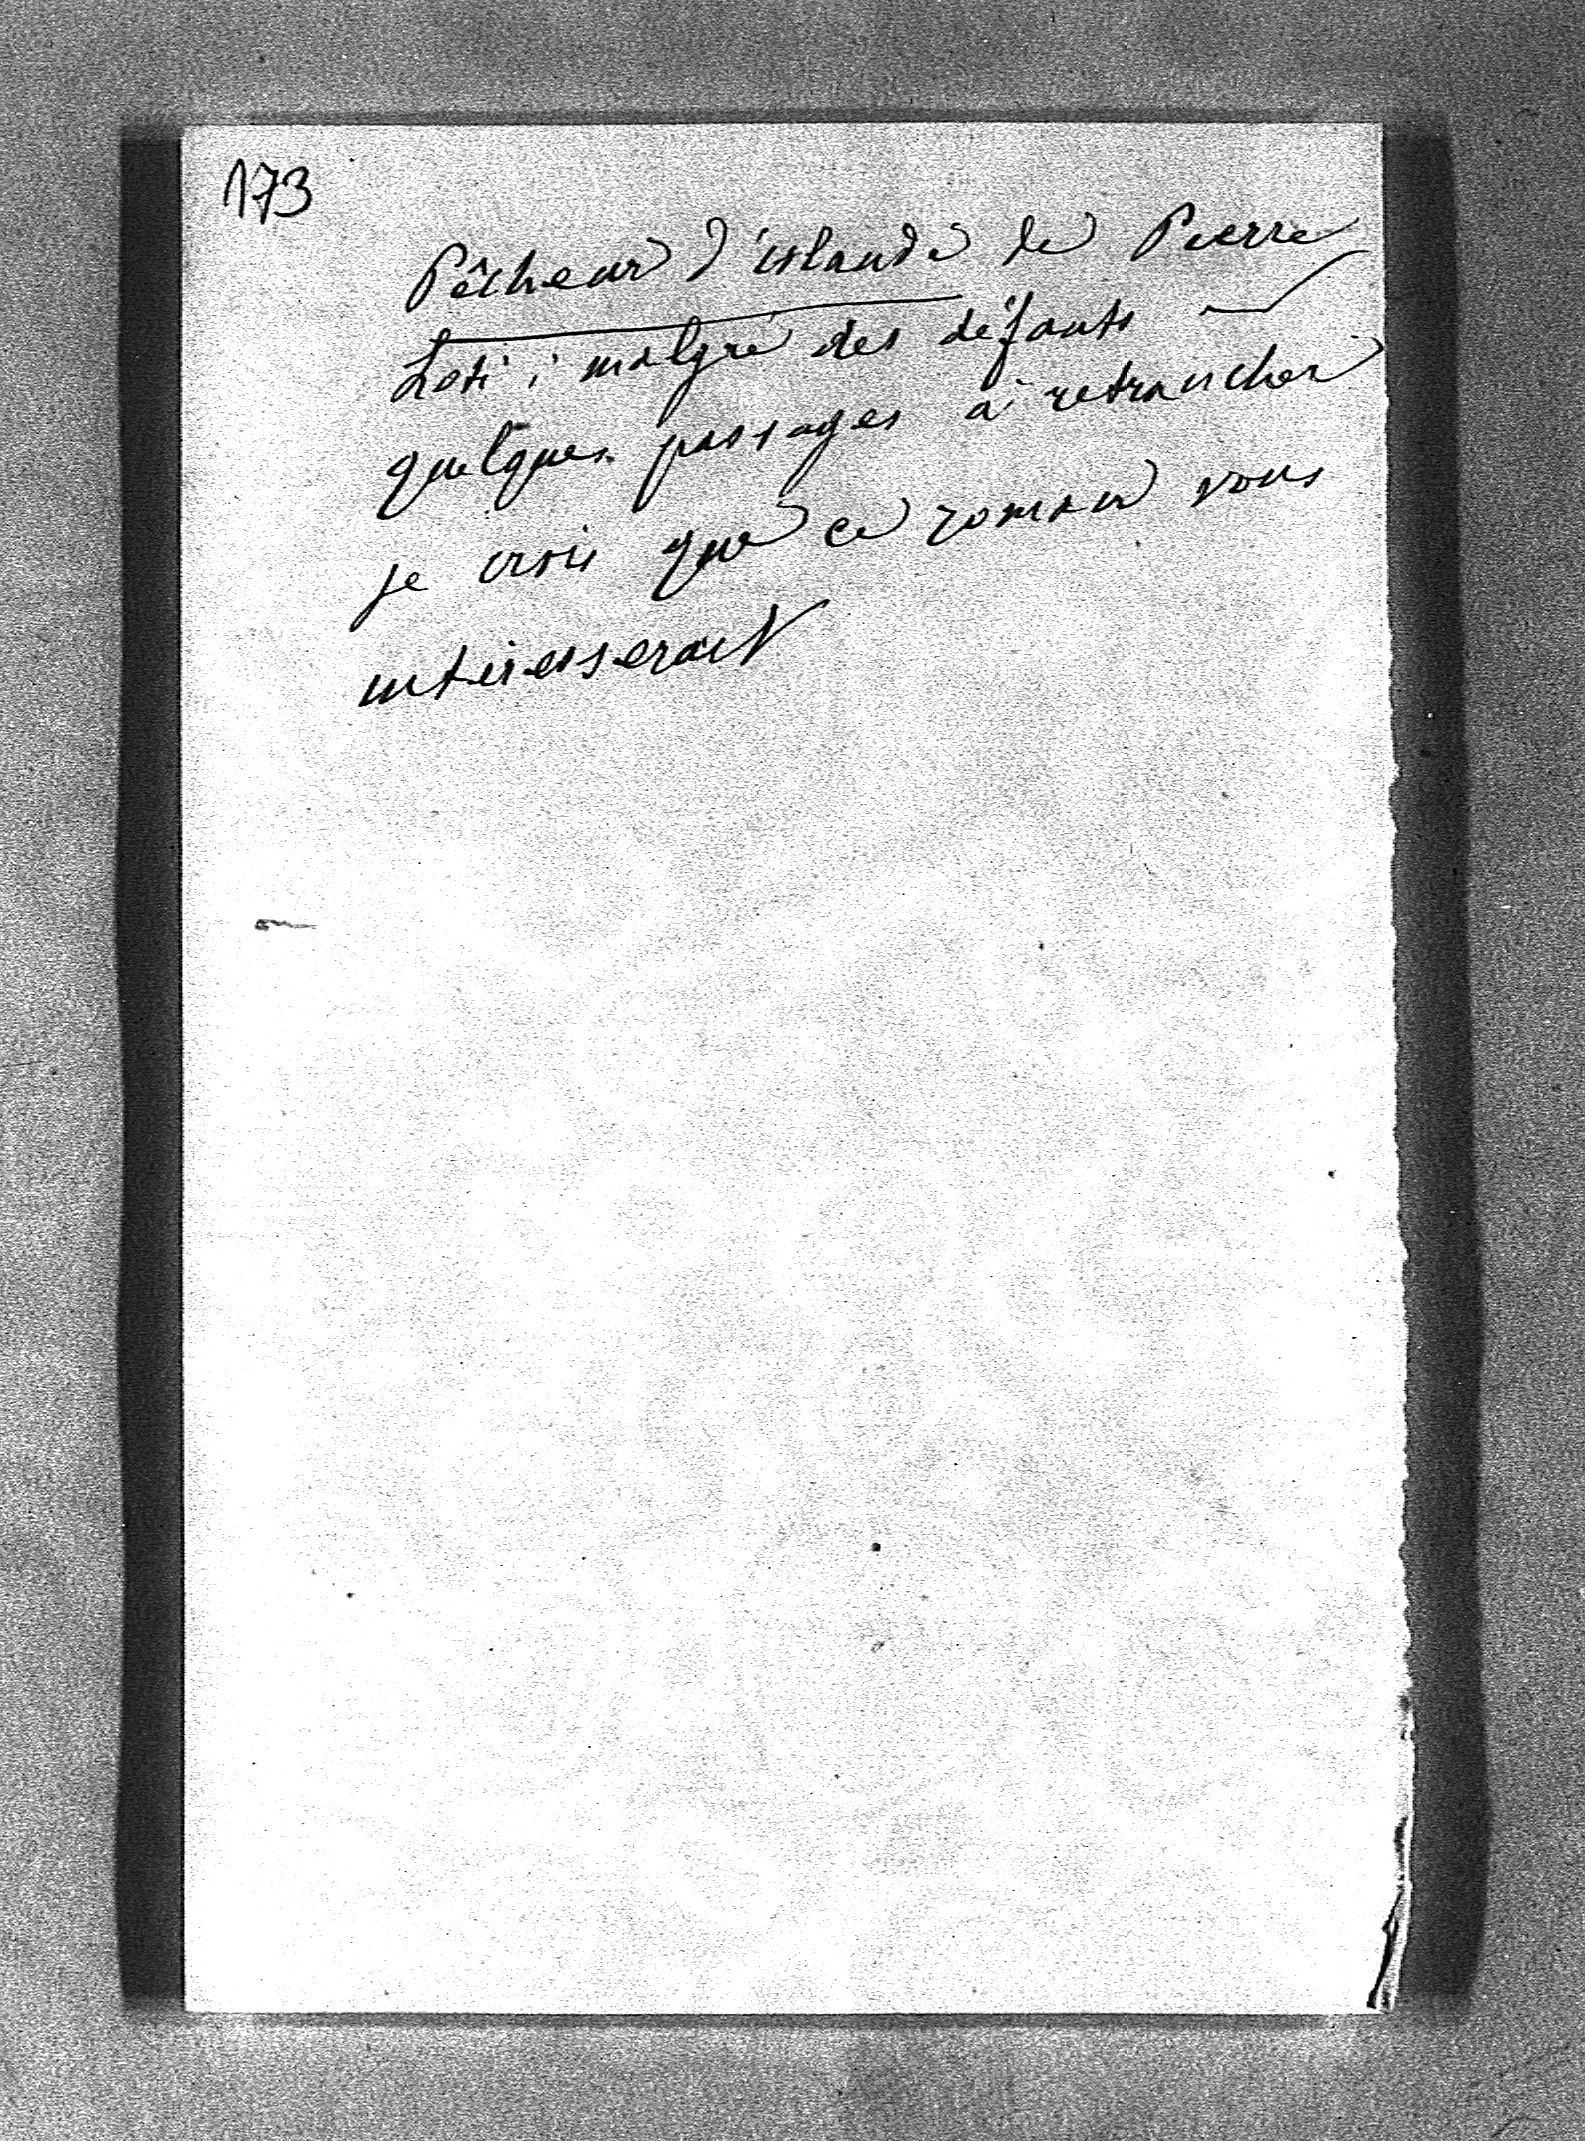 173
Pêcheur d'islande de Pierre
Loti ; malgré des défauts —
quelques passages à retrancher
je crois que ce roman vous
intéresserait